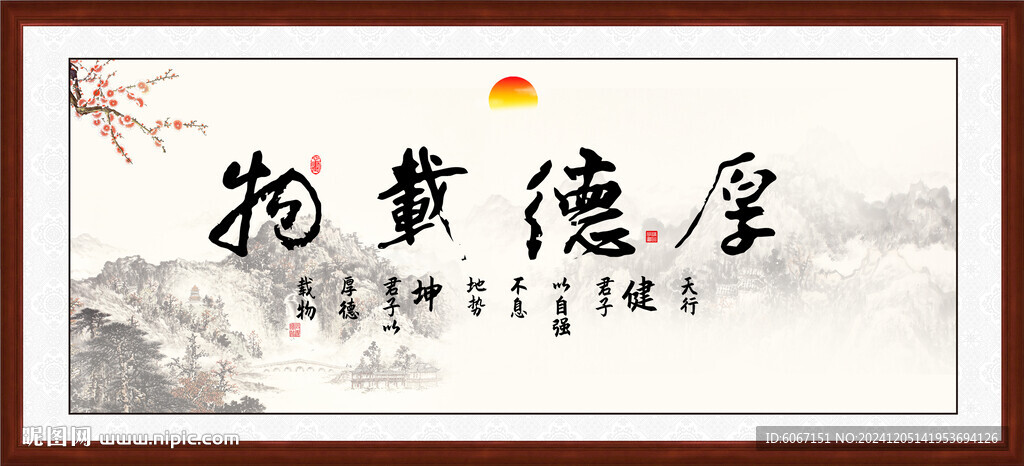 厚德載物
天行
健
君子
以自强
不息
地势
坤
君子以
厚德
载物
昵图网 www.nipic.com
ID:6067151 NO:20241205141953694126